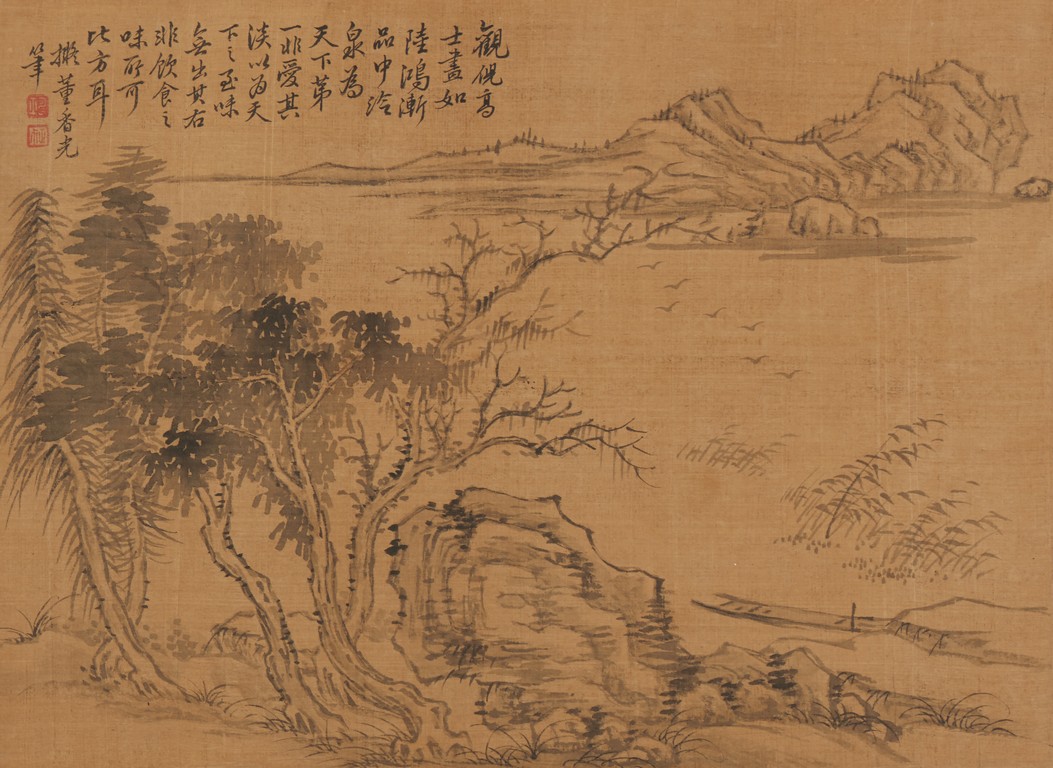 觀倪高
士畫如
陸鴻漸
品中泠
泉為
天下第
一非愛其
淡以為天
下之至味
無出其右
非飲食之
味所可
比方耳
擬董香光
筆